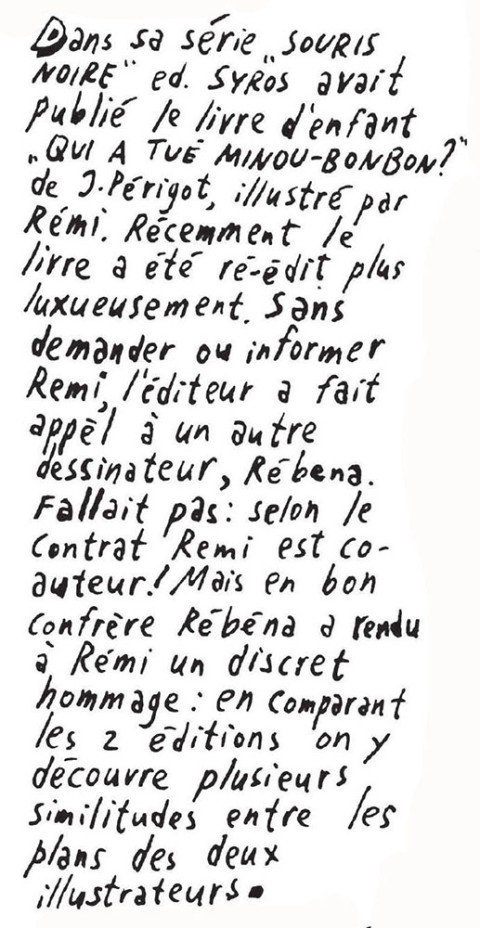 Dans sa série „SOURIS
NOIRE" ed. SYROS avait
publié le livre d'enfant
„QUI A TUÉ MINOU-BONBON?"
de J.Périgot, illustré par
Rémi. Récemment le
livre a été ré-édit plus
luxueusement. Sans
demander ou informer
Remi, l'éditeur a fait
appèl à un autre
dessinateur, Rébena.
Fallait pas: selon le
contrat Remi est co-
auteur! Mais en bon
confrère Rébéna a rendu
à Rémi un discret
hommage: en comparant
les 2 éditions on y
découvre plusieurs
similitudes entre les
plans des deux
illustrateurs.